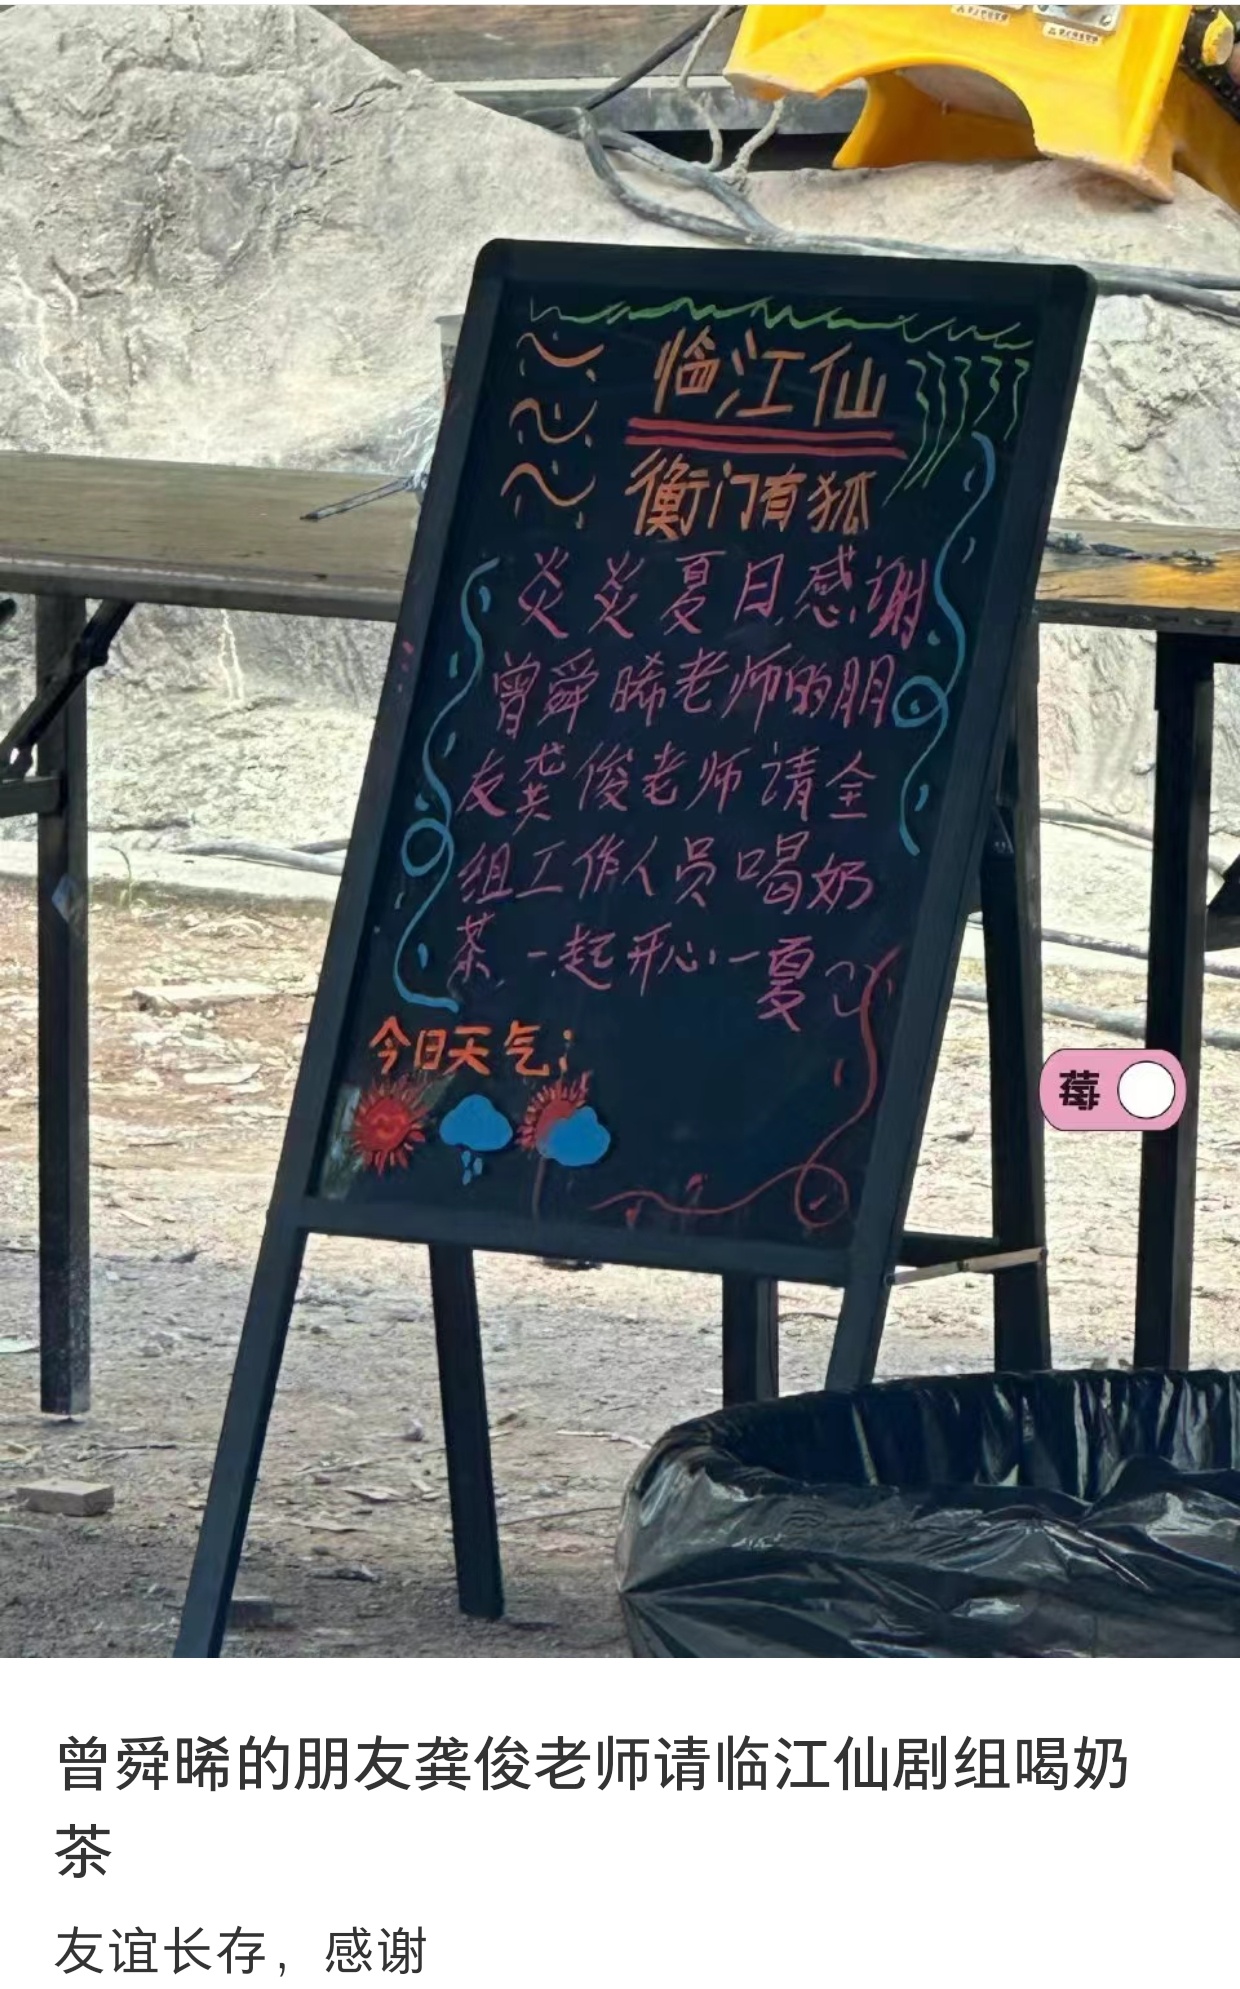 临江仙
衡门有狐
炎炎夏日感谢
曾舜晞老师的朋
友龚俊老师请全
组工作人员喝奶
茶一起开心一夏
今日天气:
莓
曾舜晞的朋友龚俊老师请临江仙剧组喝奶
茶
友谊长存，感谢